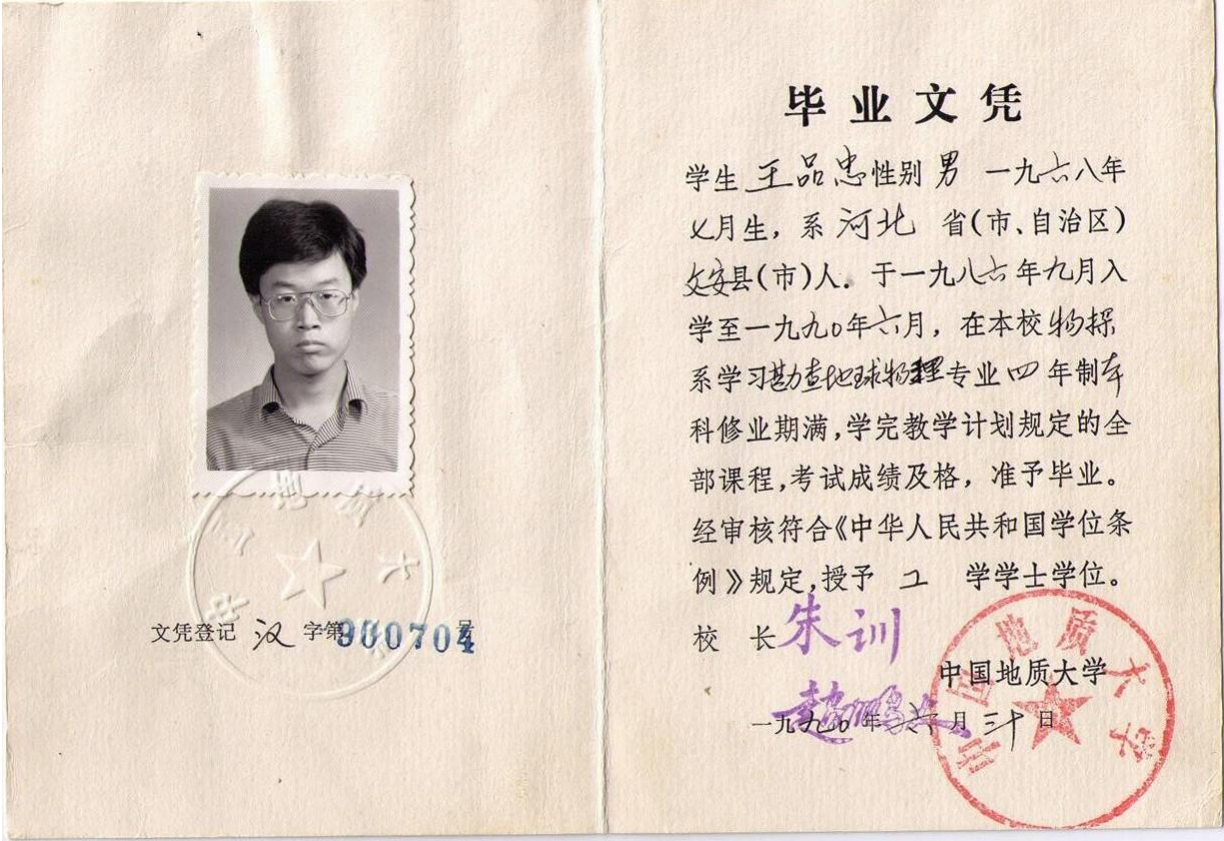 文凭登记 汉 字第900704号
中国地质大学
毕业文凭
学生 王品忠 性别 男 一九六八年
七月生，系 河北 省(市、自治区)
文安县(市)人. 于一九八六年九月入
学至一九九〇年六月，在本校物探
系学习勘查地球物理专业四年制本
科修业期满,学完教学计划规定的全
部课程,考试成绩及格，准予毕业。
经审核符合《中华人民共和国学位条
例》规定,授予 工 学学士学位。
校 长 朱训
赵鹏大
中国地质大学
一九九〇年六月三十日
中国地质大学